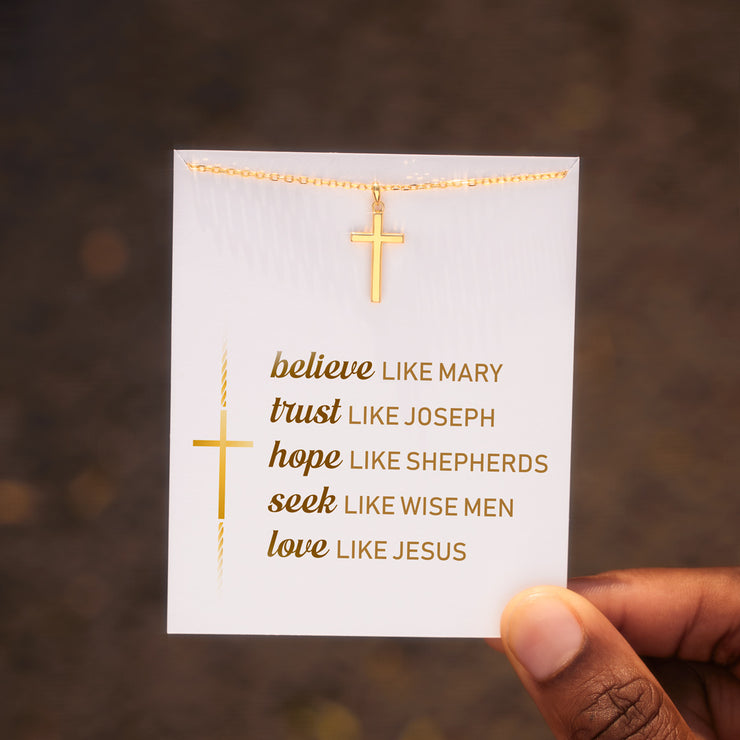 believe LIKE MARY
trust LIKE JOSEPH
hope LIKE SHEPHERDS
seek LIKE WISE MEN
love LIKE JESUS